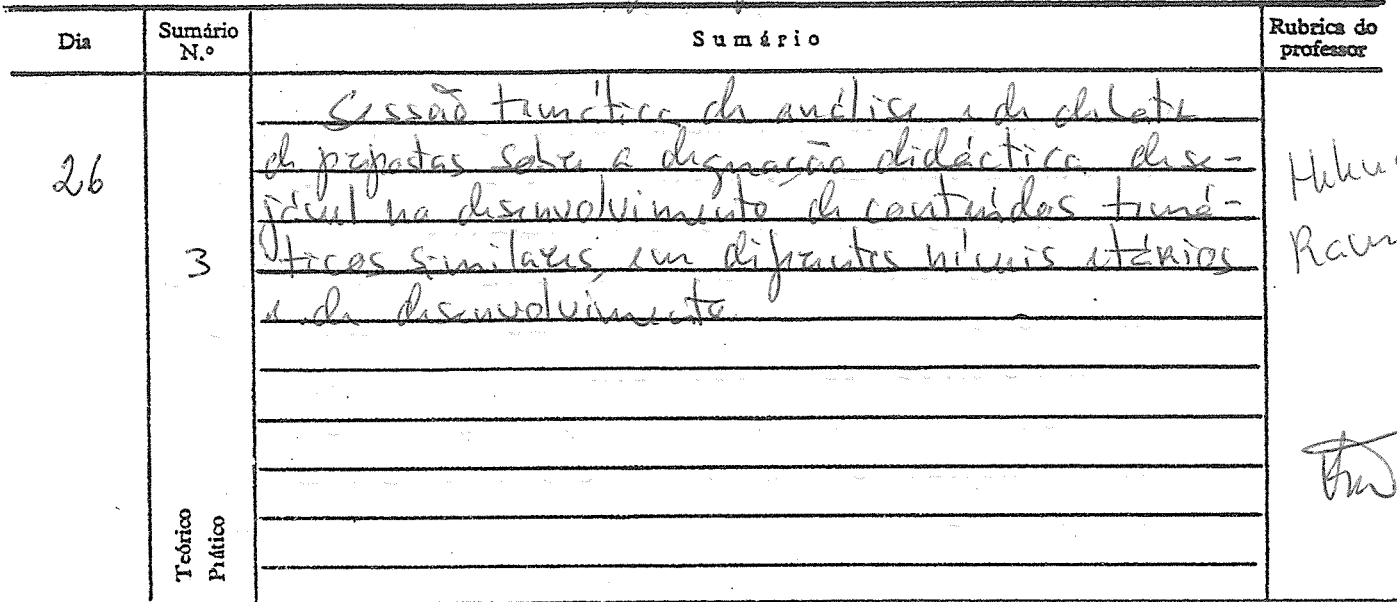 Dia
Sumário N.º
Sumário
Rubrica do professor
26
3
Sessão temática de análise e de debate
de propostas sobre a dignação didáctica dese-
jável no desenvolvimento de conteúdos temá-
ticos similares, em diferentes níveis etários
e de desenvolvimento.
Teórico
Prático